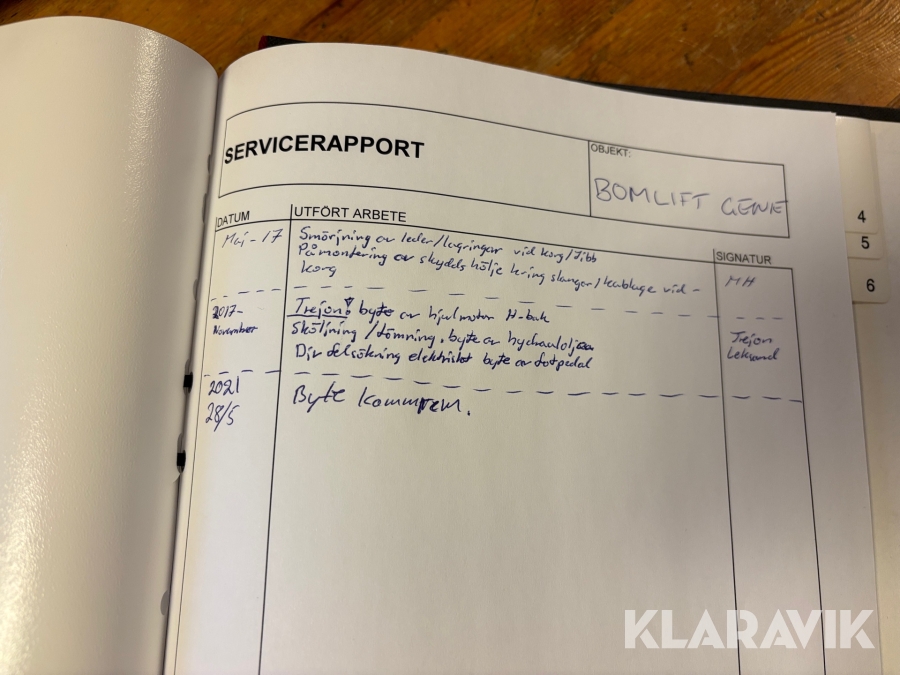 SERVICERAPPORT
OBJEKT:
BOMLIFT GENIE
DATUM
UTFÖRT ARBETE
SIGNATUR
Maj-17
Smörjning av leder/lagringar vid korg/Jibb
Påmontering av skydds hölje kring slangar/kablage vid-
korg
MH
2017-
November
Trejon: byte av hjulmotor H-bak
Sköljning/tömning, byte av hydraulolja
Div felsökning elektriskt byte av fotpedal
Trejon
Leksand
2021
28/5
Byte kamrem.
4
5
6
KLARAVIK